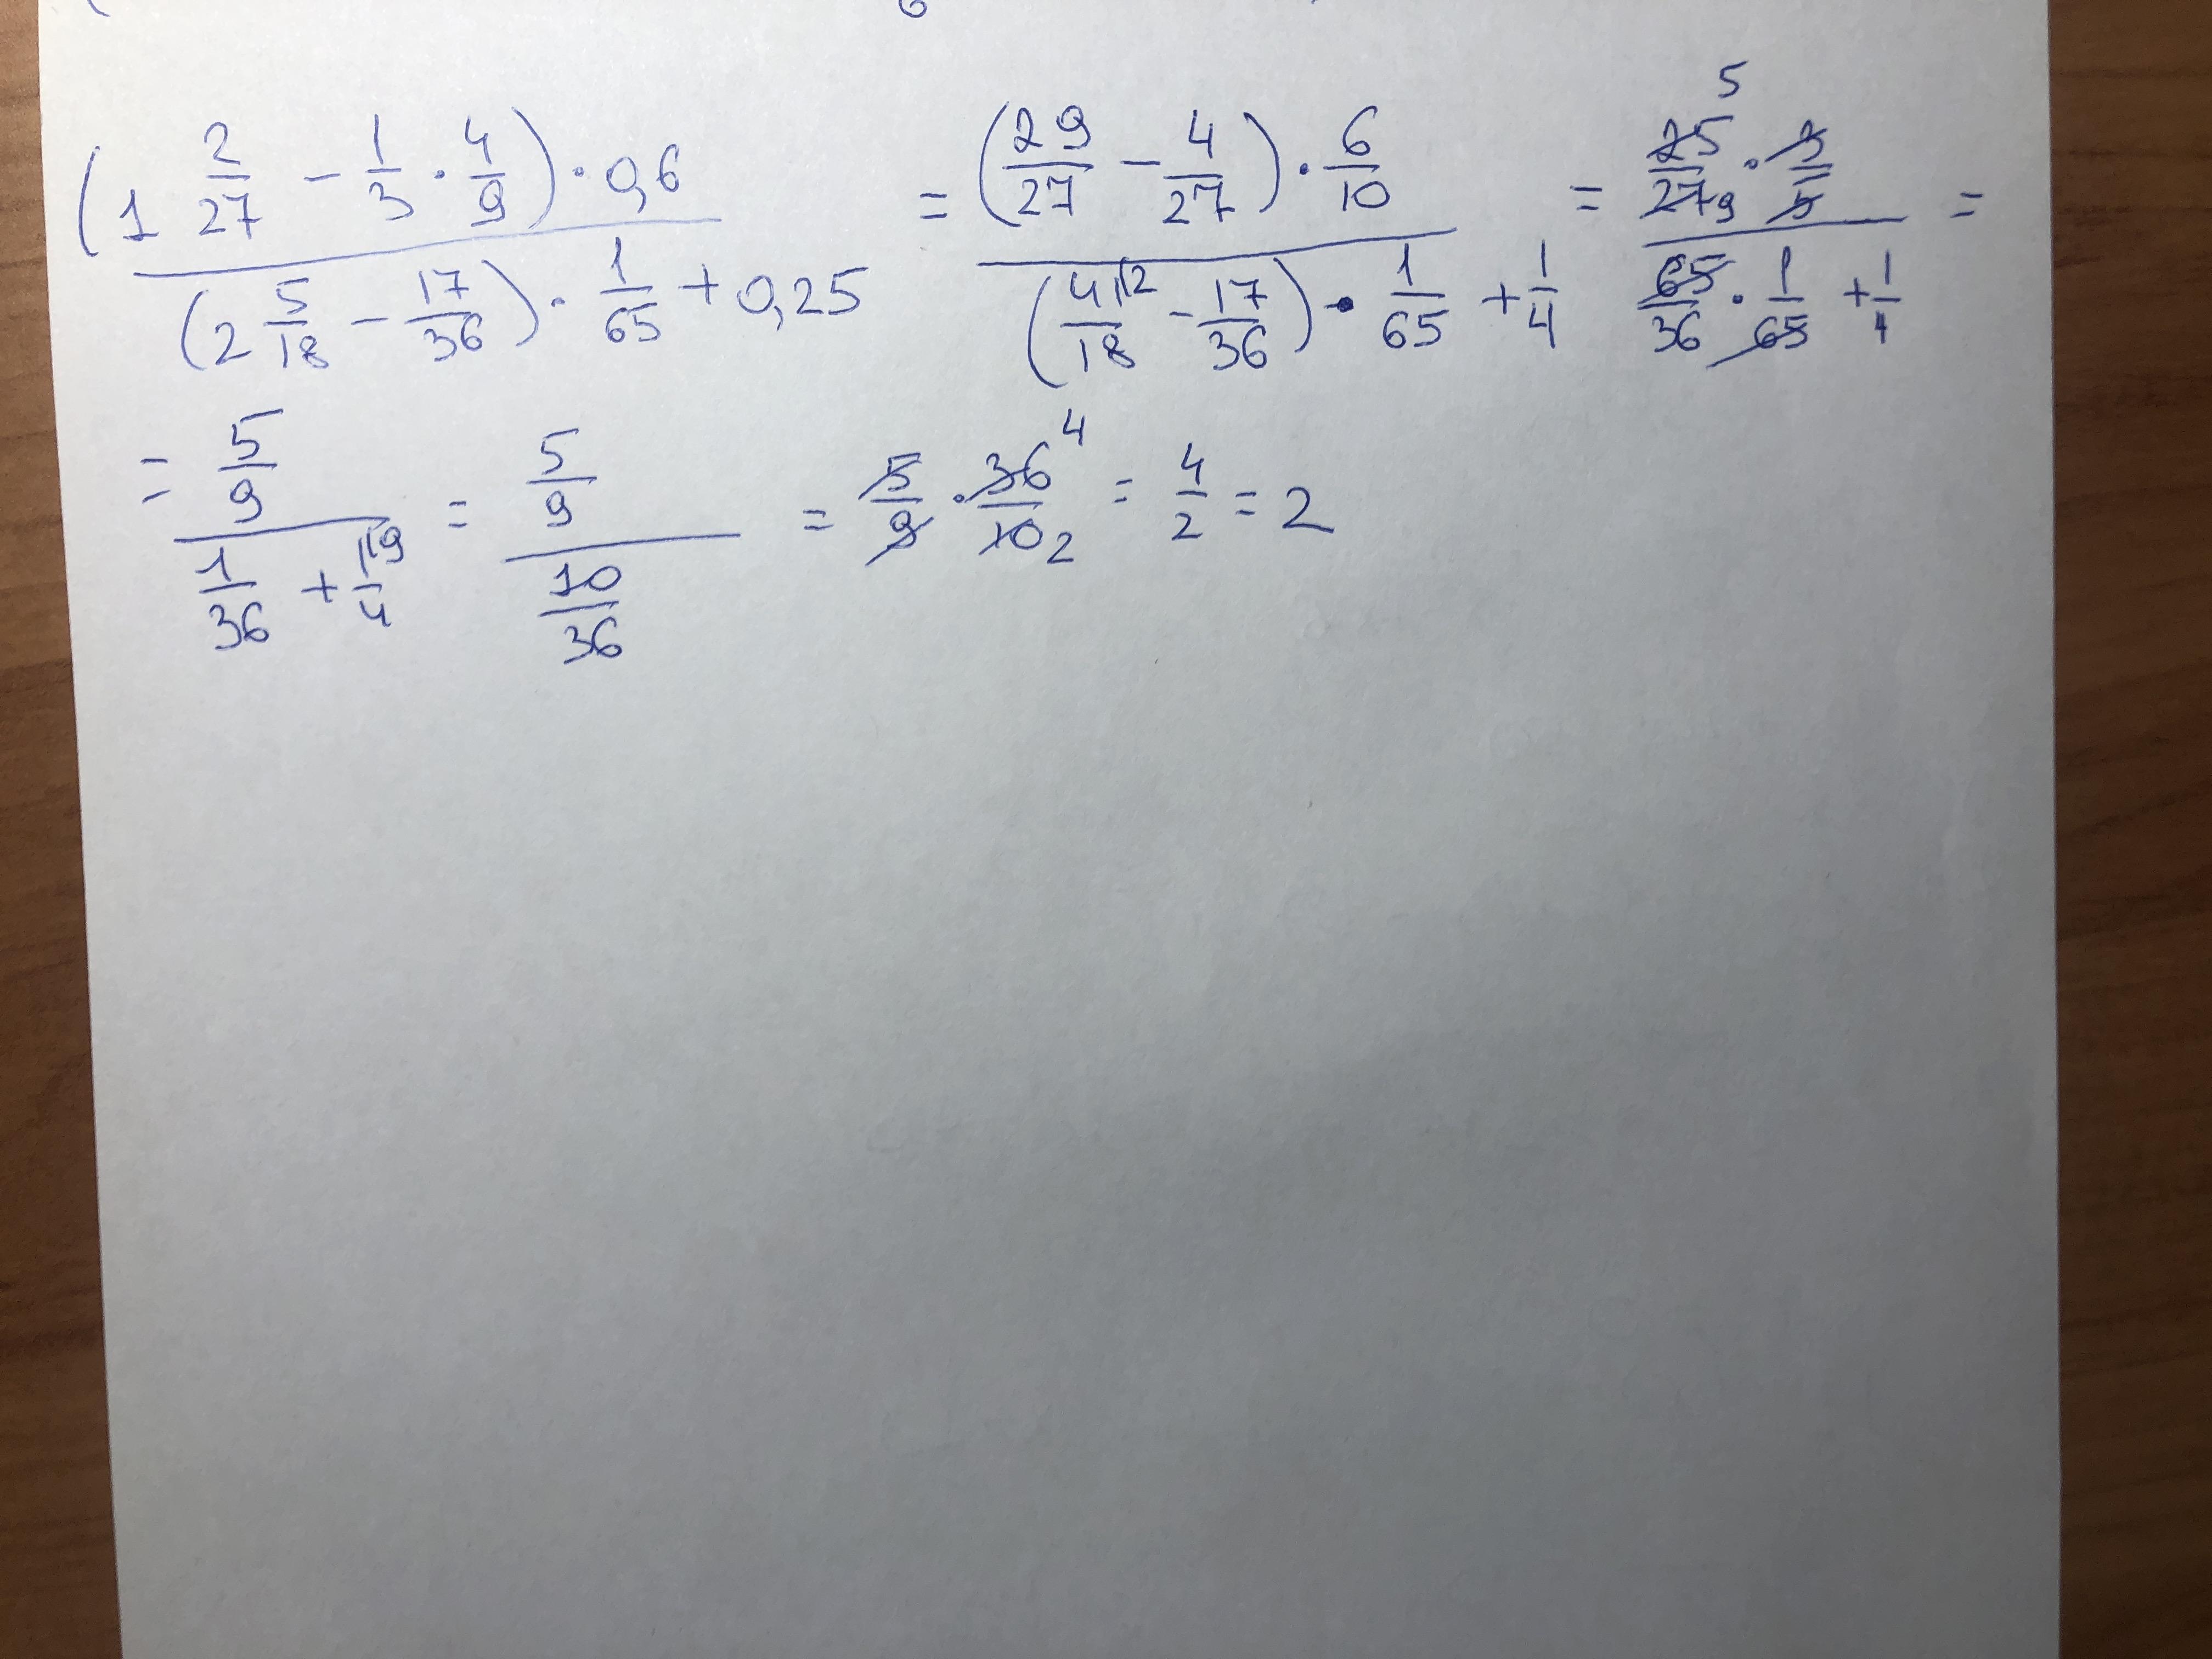 (1 2/27 - 1/3 · 4/9) · 0,6 / (2 5/18 - 17/36) · 1/65 + 0,25 = (29/27 - 4/27) · 6/10 / (41/18 |2 - 17/36) · 1/65 + 1/4 = 25 5/27 9 · 3/5 / 65/36 · 1/65 + 1/4 =
= 5/9 / 1/36 + 1/4 |9 = 5/9 / 10/36 = 5/9 · 36 4/10 2 = 4/2 = 2